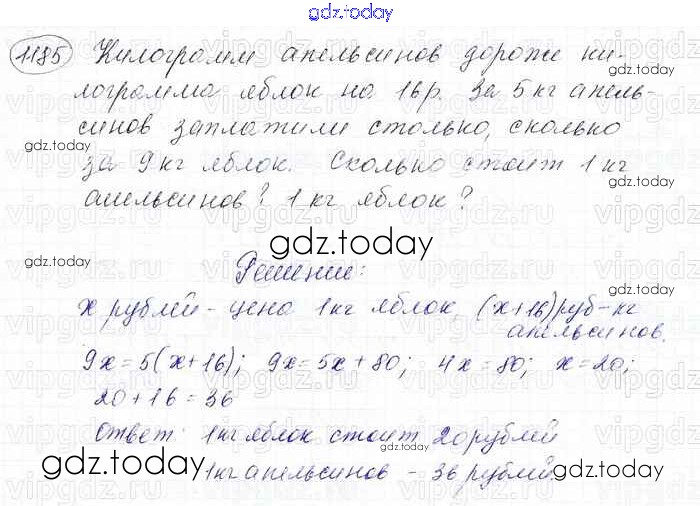 gdz.today
1185 Килограмм апельсинов дороже ки-
лограмма яблок на 16р. За 5 кг апель-
синов заплатили столько, сколько
за 9 кг яблок. Сколько стоит 1 кг
апельсинов? 1 кг яблок?
gdz.today
Решение:
x рублей - цена 1 кг яблок, (x+16) руб - кг
апельсинов.
9x = 5(x+16); 9x = 5x + 80; 4x = 80; x = 20;
20 + 16 = 36
Ответ: 1 кг яблок стоит 20 рублей
1 кг апельсинов - 36 рублей.
gdz.today